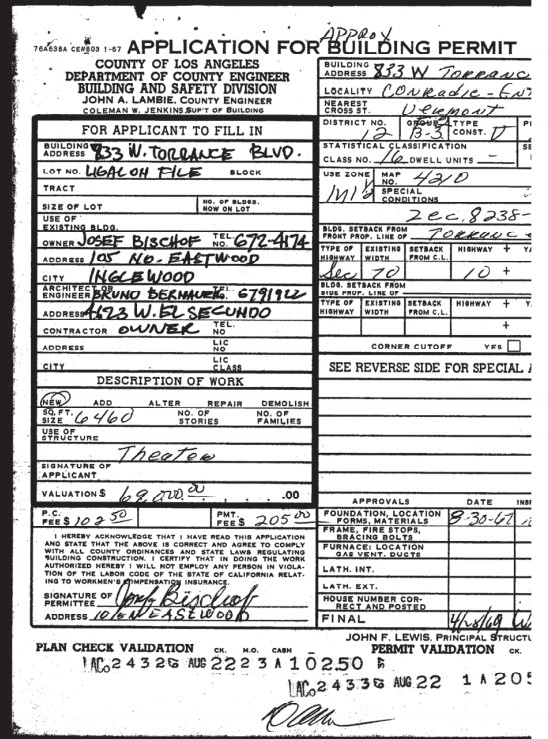 APPROX
76A638A CE#803 1-67 APPLICATION FOR BUILDING PERMIT
COUNTY OF LOS ANGELES
DEPARTMENT OF COUNTY ENGINEER
BUILDING AND SAFETY DIVISION
JOHN A. LAMBIE, COUNTY ENGINEER
COLEMAN W. JENKINS, SUP'T OF BUILDING
FOR APPLICANT TO FILL IN
BUILDING ADDRESS 833 W. TORRANCE BLVD.
LOT NO. LEGAL ON FILE BLOCK
TRACT
SIZE OF LOT NO. OF BLDGS. NOW ON LOT
USE OF EXISTING BLDG.
OWNER JOSEF BISCHOF TEL. NO. 672-4174
ADDRESS 105 NO. EASTWOOD
CITY INGLEWOOD
ARCHITECT OR ENGINEER BRUNO BERNAUER TEL. NO. 6791922
ADDRESS 4623 W. EL SEGUNDO
CONTRACTOR OWNER TEL. NO
ADDRESS LIC NO
CITY LIC CLASS
DESCRIPTION OF WORK
NEW ADD ALTER REPAIR DEMOLISH
SQ. FT. SIZE 6460 NO. OF STORIES NO. OF FAMILIES
USE OF STRUCTURE
Theater
SIGNATURE OF APPLICANT
VALUATION $ 69,000.00 .00
P.C. FEE $ 102 50 PMT. FEE $ 205 00
I HEREBY ACKNOWLEDGE THAT I HAVE READ THIS APPLICATION
AND STATE THAT THE ABOVE IS CORRECT AND AGREE TO COMPLY
WITH ALL COUNTY ORDINANCES AND STATE LAWS REGULATING
BUILDING CONSTRUCTION. I CERTIFY THAT IN DOING THE WORK
AUTHORIZED HEREBY I WILL NOT EMPLOY ANY PERSON IN VIOLA-
TION OF THE LABOR CODE OF THE STATE OF CALIFORNIA RELAT-
ING TO WORKMEN'S COMPENSATION INSURANCE.
SIGNATURE OF PERMITTEE Josef Bischof
ADDRESS 105 N EASTWOOD
BUILDING ADDRESS 833 W TORRANC
LOCALITY
NEAREST CROSS ST. Vermont
DISTRICT NO. 12 GROUP B-3 TYPE CONST. V
STATISTICAL CLASSIFICATION
CLASS NO. 16 DWELL UNITS —
USE ZONE M1 1/2 MAP NO. 4210
SPECIAL CONDITIONS
Zec. 8238-
BLDG. SETBACK FROM FRONT PROP. LINE OF TORRANC
TYPE OF HIGHWAY EXISTING WIDTH SETBACK FROM C.L. HIGHWAY +
Sec 70 10 +
BLDG. SETBACK FROM SIDE PROP. LINE OF
TYPE OF HIGHWAY EXISTING WIDTH SETBACK FROM C.L. HIGHWAY +
+
CORNER CUTOFF YES
SEE REVERSE SIDE FOR SPECIAL
APPROVALS DATE INS
FOUNDATION, LOCATION FORMS, MATERIALS 8-30-67
FRAME, FIRE STOPS, BRACING BOLTS
FURNACE: LOCATION GAS VENT, DUCTS
LATH. INT.
LATH. EXT.
HOUSE NUMBER CORRECT AND POSTED
FINAL 4/28/69
JOHN F. LEWIS, PRINCIPAL STRUCTU
PLAN CHECK VALIDATION CK. M.O. CASH
PERMIT VALIDATION CK.
LACo 2 4 3 2 6 AUG 22 2 3 A 1 0 2.50
LACo 2 4 3 3 6 AUG 22 1 A 2 0 5